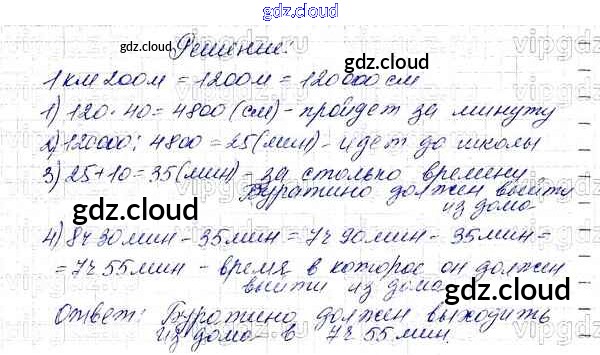 gdz.cloud
gdz.cloud
Решение:
gdz.cloud
1 км 200 м = 1200 м = 120000 см
1) 120 · 40 = 4800 (см) - пройдет за минуту
2) 120000 : 4800 = 25 (мин) - идет до школы
3) 25 + 10 = 35 (мин) - за столько времени
Буратино должен выйти
из дома
gdz.cloud
gdz.cloud
4) 8ч 30мин - 35мин = 7ч 90мин - 35мин =
= 7ч 55мин - время в которое он должен
выйти из дома
gdz.cloud
Ответ: Буратино должен выходить
из дома в 7ч 55мин.
gdz.cloud